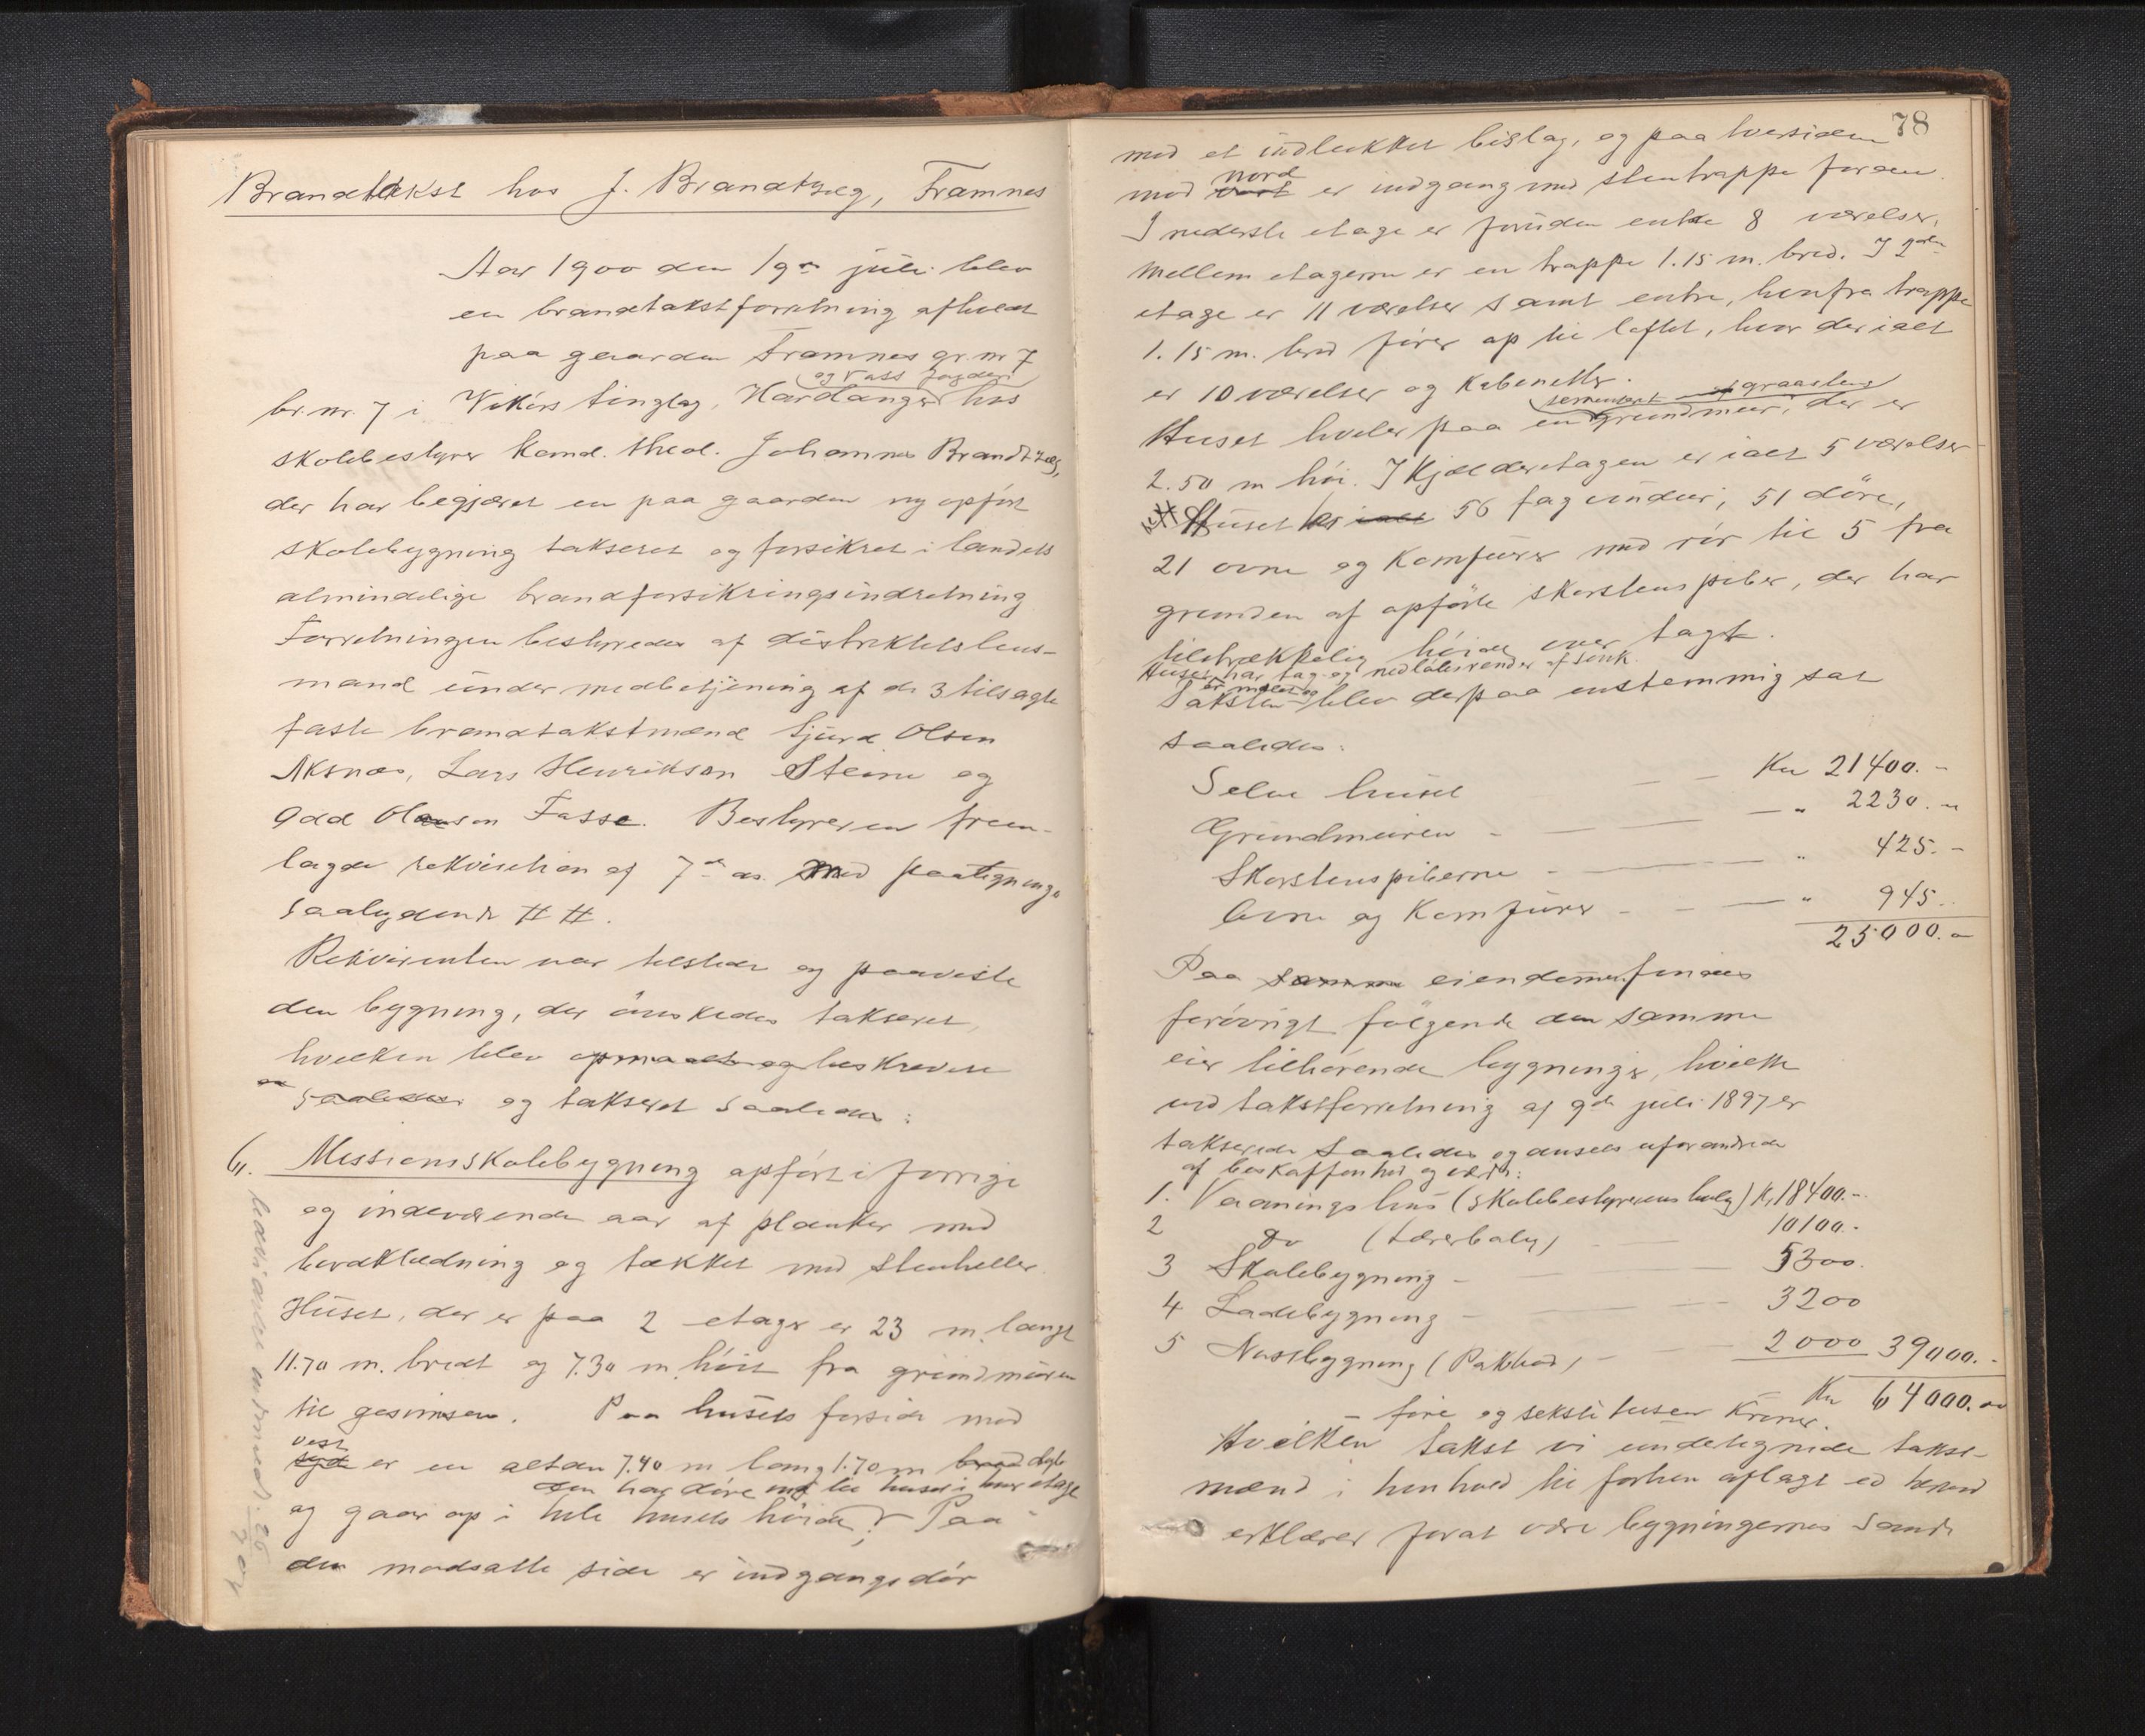 Brandtakst hos J. Brandtzæg, Framnes
Aar 1900 den 19de juli blev
en brandtakstforretning afholdt
paa gaarden Framnes gr. nr 7
og Voss fogderi
br. nr. 7 i Vikörs tinglag, Hardanger hos
skolebestyrer kand. theol. Johannes Brandtzæg,
der har begjæret en paa gaarden ny opfört
skolebygning takseret og forsikret i landets
almindelige brandforsikringsindretning
Forretningen bestyredes af distriktets lens-
mand under medbetjening af de 3 tilsagte
faste brandtakstmænd Sjurd Olsen
Aksnes, Lars Henrikson Steine og
Odd Olanson Fosse. Bestyreren frem-
lagde rekvisition af 7de ds. med paategning
saalydende # #.
Rekvirenten var tilstede og paaviste
den bygning, der önskedes takseret,
hvilken blev opmaalt og beskreven
saaledes og takseret saaledes:
6. Missionsskolebygning opfört i forrige
og indeværende aar af planker med
bordklædning og tækket med stenheller.
Huset, der er paa 2 etager er 23 m. langt
11.70 m. bredt og 7.30 m. höit fra grundmuren
til gesimsen. Paa husets forside mod
vest
syd er en altan 7.40 m lang 1.70 m bred
den har döre ind til huset i hver etage
og gaar op i hele husets höide. Paa
den modsatte side er indgangsdör
78
med et indlukket bislag, og paa tversiden
nord
mod vest er indgang med stentrappe foran.
I nederste etage er foruden entre 8 værelser.
Mellem etagerne er en trappe 1.15 m. bred. I 2den
etage er 11 værelser samt entre, hvorfra trappe
1.15 m. bred förer op til loftet, hvor der ialt
er 10 værelser og kabenetter.
sementert graastens
Huset hviler paa en grundmur, der er
2.50 m höi. I kjælderetagen er ialt 5 værelser
Huset har ialt 56 fag vinduer, 51 döre,
21 ovne og komfurer med rör til 5 fra
grunden af opförte skorstenspiber, der har
tilstrækkelig höide over taget.
Huset har tag og nedlöbsrender af sink
er malet og
Taksten blev derpaa enstemmig sat
saaledes:
Selve huset — — Kr 21400. -
Grundmuren - — — — " 2230. -
Skorstenspiberne - — — " 425. -
Ovne og Komfurer - - — " 945.
25000. -
Paa samme eiendommen findes
forövrigt fölgende den samme
eier tilhörende bygninger, hvilke
ved takstforretning af 9de juli 1897 er
takserede saaledes og ansees uforandrede
af beskaffenhed og værdi:
1. Vaaningshus (skolebestyrerens bolig) Kr 18400. -
2 do (Lærerbolig) — 10100. -
3 Skolebygning - — — 5300.
4 Ladebygning - — — 3200
5 Nøstbygning (Pakbod) - — 2000 39000. -
Kr 64000. -
fire og seksti tusen Kroner.
Hvilken takst vi undetegnede takst-
mænd i henhold til forhen aflagt ed herved
erklærer forat være bygningernes sande